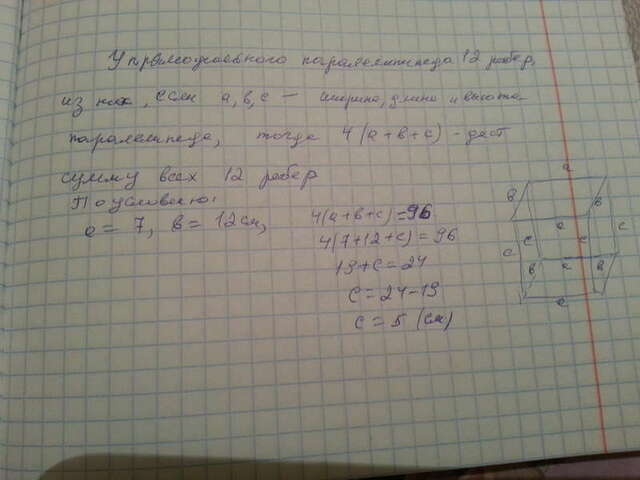 У прямоугольного паралелипипеда 12 ребер,
из них, если a, b, c — ширина, длина и высота
паралелипеда, тогда 4(a+b+c) - даст
сумму всех 12 ребер
По условию:
a = 7, b = 12 см,
4(a+b+c) = 96
4(7+12+c) = 96
19+c = 24
c = 24-19
c = 5 (см)
a
b b
a
c c c c
b a b
a